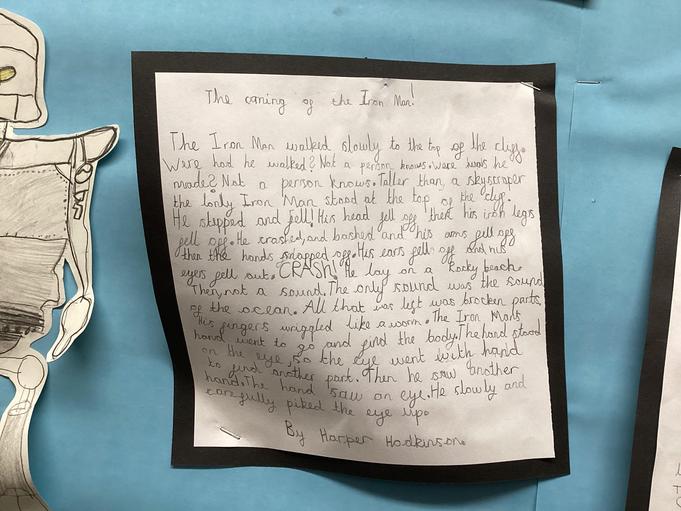 The coming of the Iron Man!
The Iron Man walked slowly to the top of the cliff.
Were had he walked? Not a person knows. Were was he
made? Not a person knows. Taller than a skyscraper
the lonly Iron Man stood at the top of the clif.
He slipped and fell! His head fell off then his iron legs
fell off. He crashed, and bashed and his arms fell off
then the hands snapped off. His ears fell off and his
eyes fell out. CRASH! He lay on a Rocky beach.
Then, not a sound. The only sound was the sound
of the ocean. All that was left was brocken parts.
His fingers wriggled like a worm. The Iron Man's
hand went to go and find the body. The hand stood
on the eye, so the eye went with hand
to find another part. Then he saw another
hand. The hand saw an eye. He slowly and
carefully piked the eye up.
By Harper Hodkinson.